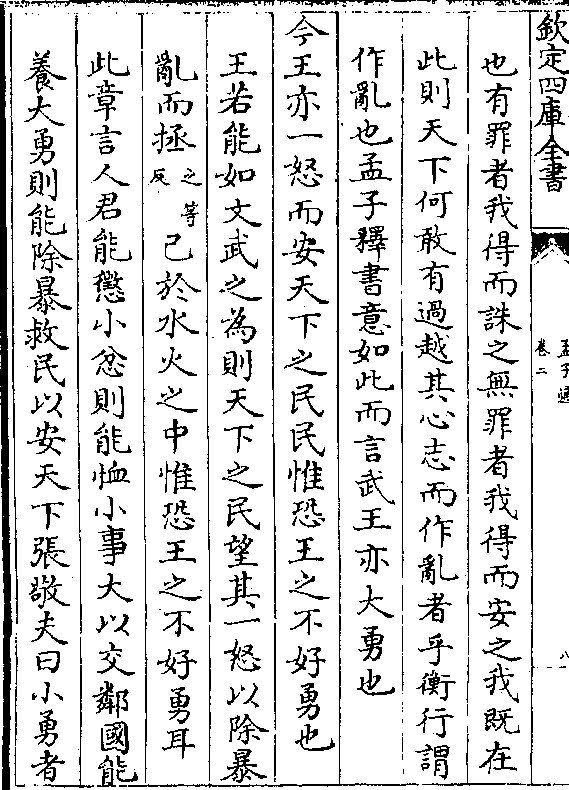 欽定四庫全書
孟子通
卷二
八
也有罪者我得而誅之無罪者我得而安之我既在
此則天下何敢有過越其心志而作亂者乎衡行謂
作亂也孟子釋書意如此而言武王亦大勇也
今王亦一怒而安天下之民民惟恐王之不好勇也
王若能如文武之為則天下之民望其一怒以除暴
亂而拯之等反己於水火之中惟恐王之不好勇耳
此章言人君能懲小忿則能恤小事大以交鄰國能
養大勇則能除暴救民以安天下張敬夫曰小勇者